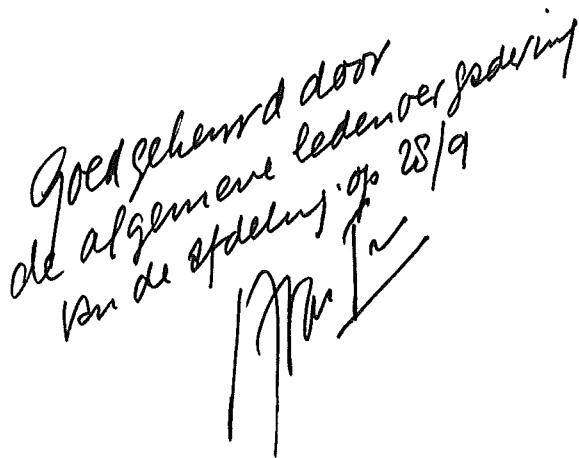 Goedgekeurd door
de algemene ledenvergadering
van de afdeling op 28/9